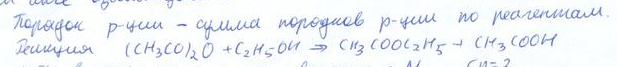 Порядок р-ции – сумма порядков р-ции по реагентам.
Реакция (CH3CO)2O + C2H5OH ⇒ CH3COOC2H5 + CH3COOH